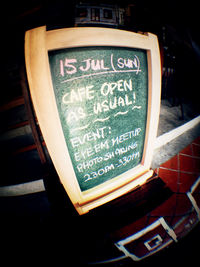 15 JUL (SUN)
CAFE OPEN
AS USUAL!
EVENT:
EYEEM MEETUP
PHOTO SHARING
230PM-530PM